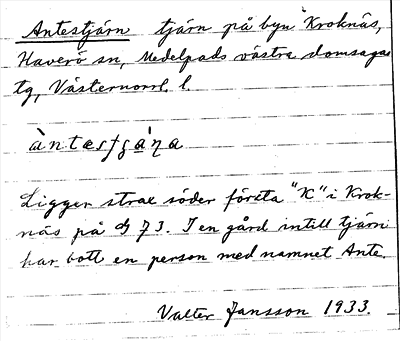 Antestjärn tjärn på byn Kroknäs,
Haverö sn, Medelpads västra domsagas
tg, Västernorrl. l.
Ligger strax söder första "K" i Krok-
näs på 73. I en gård intill tjärn
har bott en person med namnet Ante.
Valter Jansson 1933.